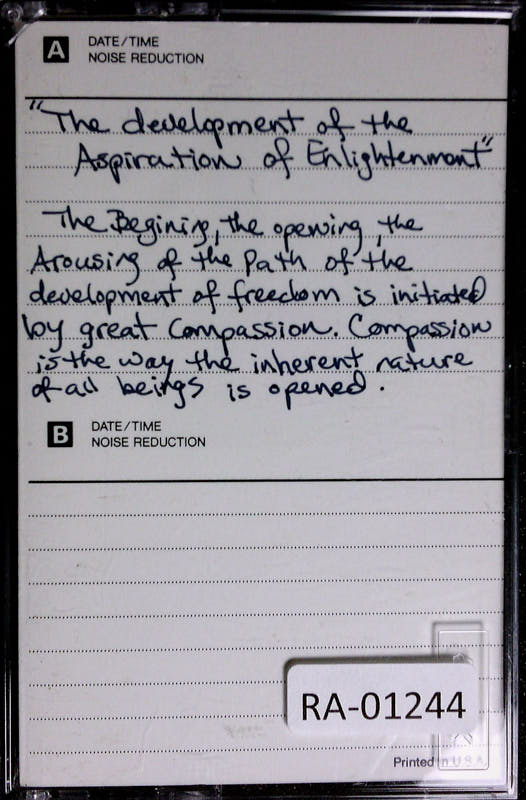 A DATE/TIME
NOISE REDUCTION
"The development of the
Aspiration of Enlightenment"
The Begining, the opening, the
Arousing of the Path of the
development of freedom is initiated
by great Compassion. Compassion
is the way the inherent nature
of all beings is opened.
B DATE/TIME
NOISE REDUCTION
RA-01244
Printed in U.S.A.